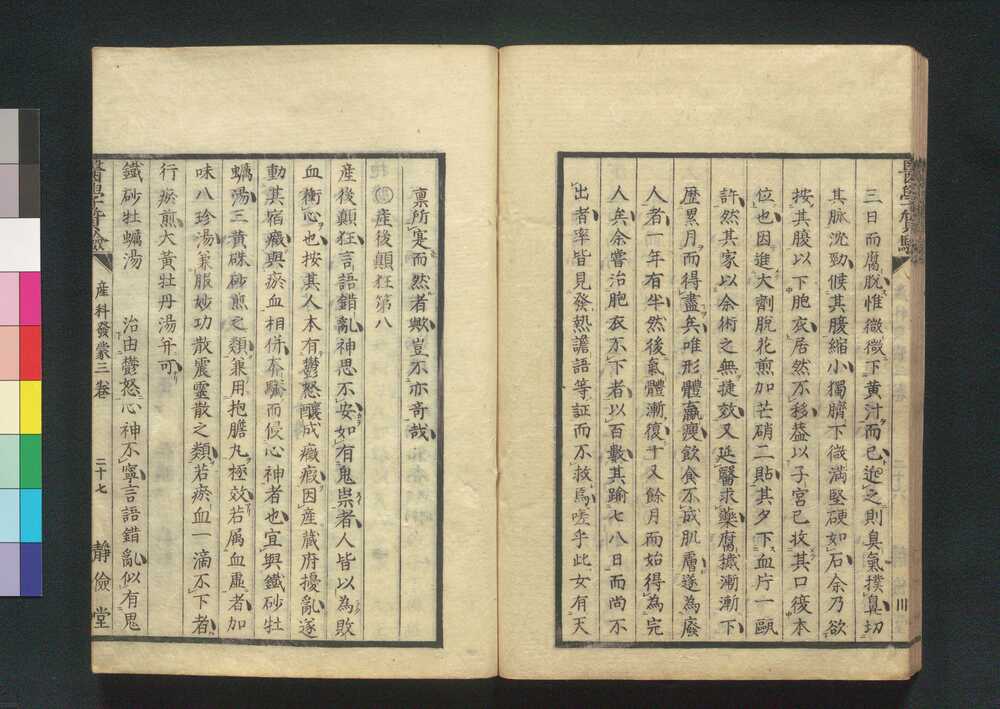 三日而腐脫惟微微下黃汁而已近之則臭氣撲鼻切
其脉沈勁候其腹縮小獨臍下微滿堅硬如石余乃欲
按其腹以下胞衣居然不移蓋以子宮已收其口復本
位也因進大劑脫花煎加芒硝二貼其夕下血片一甌
許然其家以余術之無捷效又延醫求藥腐穢漸漸下
歷累月而得盡矣唯形體羸瘦飲食不成肌膚遂為廢
人者一年有半然後氣體漸復十又餘月而始得為完
人矣余嘗治胞衣不下者以百數其踰七八日而尚不
出者率皆見發熱譫語等証而不救焉嗟乎此女有天
稟所寔而然者歟豈不亦奇哉
產後顛狂第八
產後顛狂言語錯亂神思不安如有鬼祟者人皆以為敗
血衝心也按其人本有鬱怒釀成癥瘕因產藏府擾亂遂
動其宿癥與瘀血相併奔騰而侵心神者也宜與鐵砂牡
蠣湯三黃硃砂煎之類兼用抱膽丸極效若属血虛者加
味八珍湯兼服妙功散震靈散之類若瘀血一滴不下者
行瘀煎大黃牡丹湯年可
鐵砂牡蠣湯 治由鬱怒心神不寧言語錯亂似有鬼
產科發蒙三卷 二十七 靜儉堂